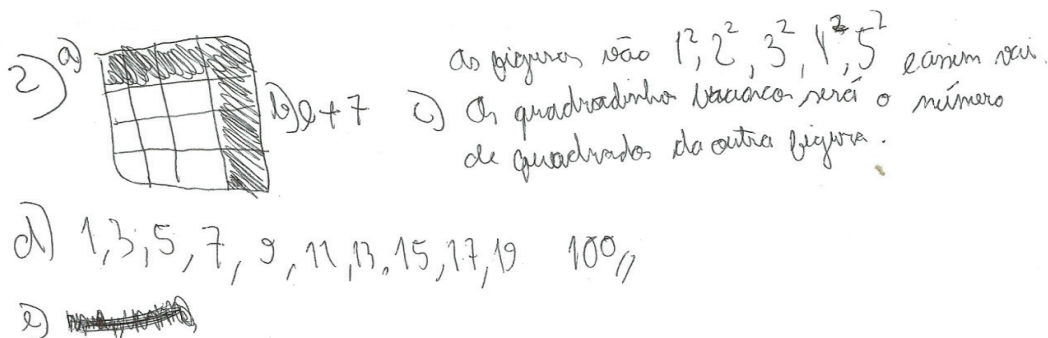 2) a)
b) 9+7
As figuras vão 1², 2², 3², 4², 5² e assim vai.
c) Os quadradinhos brancos será o número
de quadrados da outra figura.
d) 1,3,5,7,9,11,13,15,17,19 100,,
e)